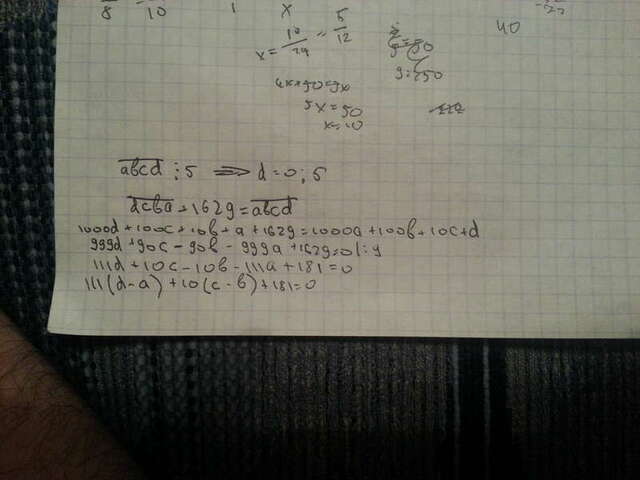 8 10 1 x
x = 10/24 = 5/12
40
4x+50=9x
5x=50
x=10
abcd ⋮ 5 ⟹ d = 0; 5
dcba + 1629 = abcd
1000d + 100c + 10b + a + 1629 = 1000a + 100b + 10c + d
999d + 90c - 90b - 999a + 1629 = 0 |:9
111d + 10c - 10b - 111a + 181 = 0
111(d-a) + 10(c-b) + 181 = 0